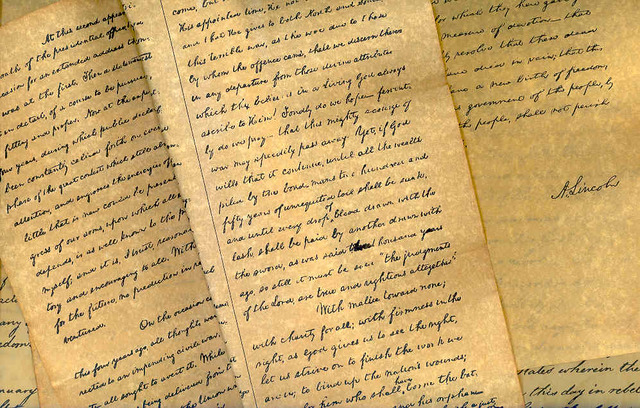 At this second appear
oath of the presidential office,
casion for an extended address than
was at the first. Then a statement
in detail, of a course to be pursued,
fitting and proper. Now, at the expir
four years, during which public declar
been constantly called forth on every
phase of the great contest which still absor
attention, and engrosses the energies of the
little that is new could be presen
gress of our arms, upon which all
depends, is as well known to the p
myself; and it is, I trust, reasona
tory and encouraging to all. With
for the future, no prediction in
ventured.
On the occasion
this four years ago, all thoughts were
rected to an impending civil war.
all sought to avert it. While
being delivered from
come, but
His appointed time, He now
and that He gives to both North and South
this terrible war, as the woe due to those
by whom the offence came, shall we discern therein
in any departure from those divine attributes
which the believers in a Living God always
ascribe to Him? Fondly do we hope—fervent-
ly do we pray—that this mighty scourge of
war may speedily pass away. Yet, if God
wills that it continue, until all the wealth
piled by the bond-man's two hundred and
fifty years of unrequited toil shall be sunk,
and until every drop of blood drawn with the
lash, shall be paid by another drawn with
the sword, as was said three thousand years
ago, so still it must be said "the judgments
of the Lord, are true and righteous altogether"
With malice toward none;
with charity for all; with firmness in the
right, as God gives us to see the right,
let us strive on to finish the work we
are in; to bind up the nation's wounds;
to care for him who shall have borne the bat-
his orphan
which they have
measure of devotion—that
resolve that these dead
died in vain; that the
a new birth of freedom,
government of the people, by
the people, shall not perish
A. Lincoln
states wherein the
this day in rebel